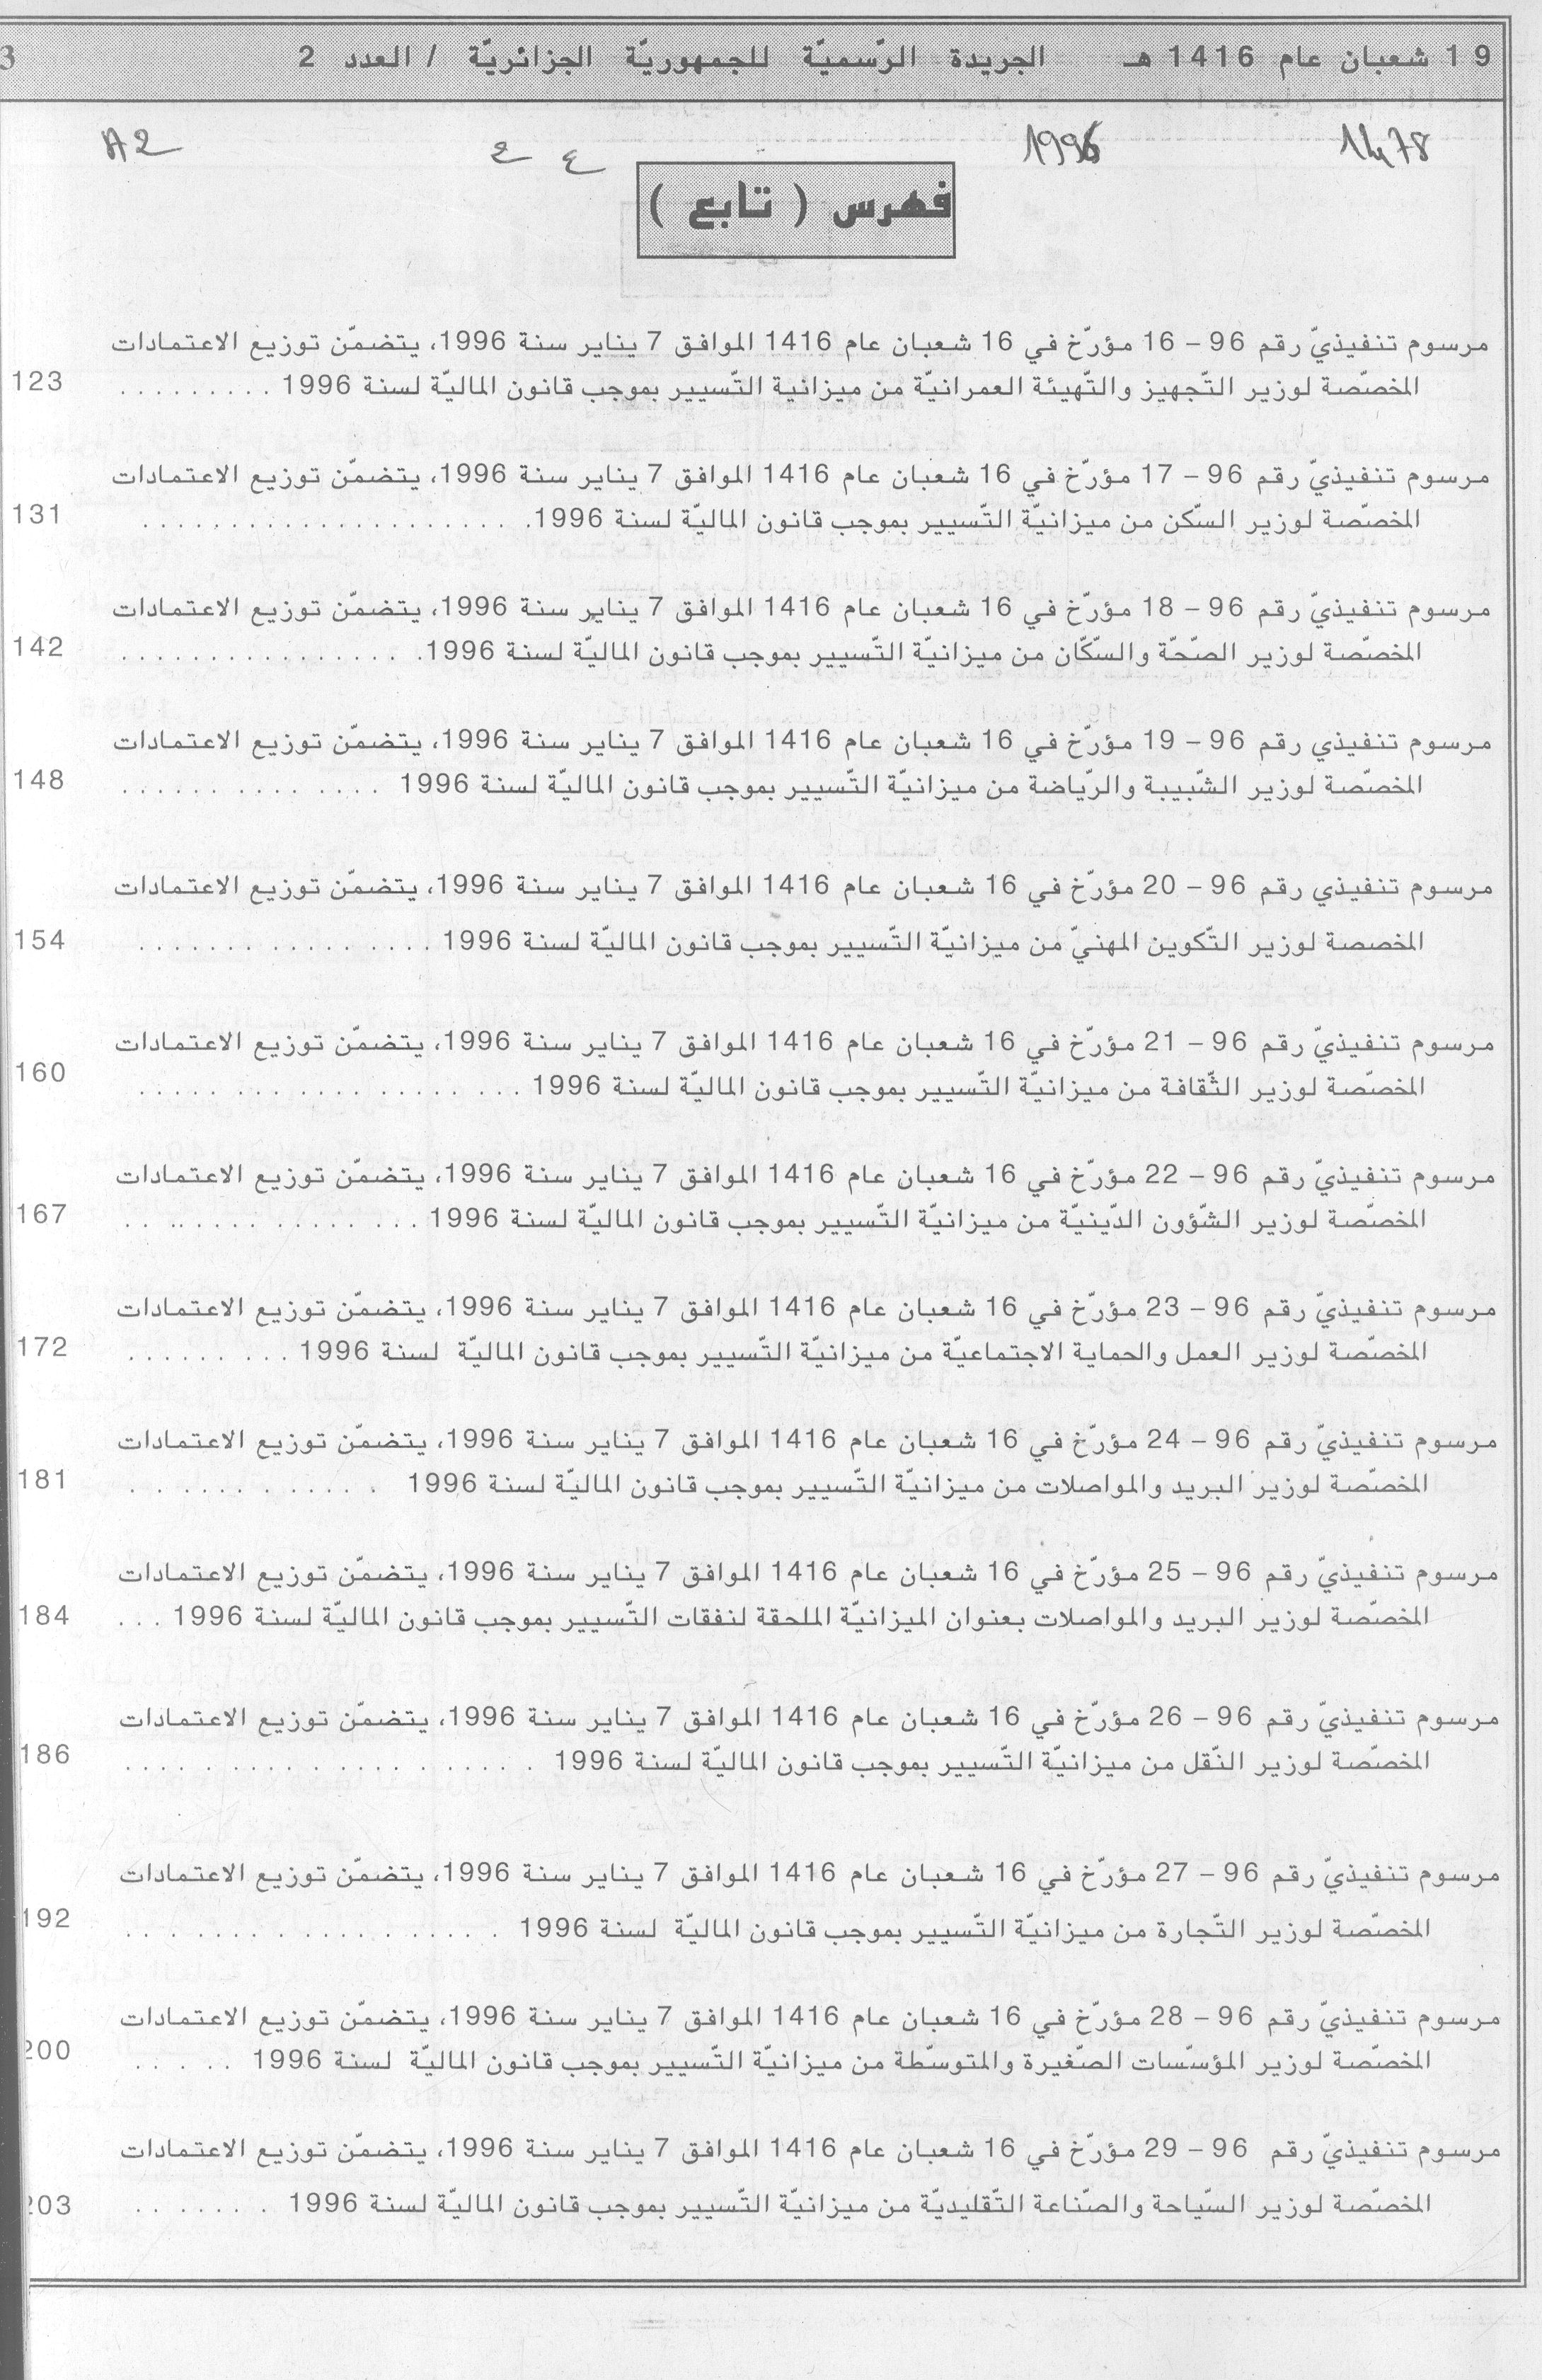 19 شعبان عام 1416 هـ الجريدة الرّسميّة للجمهوريّة الجزائريّة / العدد 2 3
1478 1996 ع ع A2
فهرس ( تابع )
مرسوم تنفيذيّ رقم 96 – 16 مؤرّخ في 16 شعبان عام 1416 الموافق 7 يناير سنة 1996، يتضمّن توزيع الاعتمادات
المخصّصة لوزير التّجهيز والتّهيئة العمرانيّة من ميزانية التّسيير بموجب قانون الماليّة لسنة 1996 ......... 123
مرسوم تنفيذيّ رقم 96 – 17 مؤرّخ في 16 شعبان عام 1416 الموافق 7 يناير سنة 1996، يتضمّن توزيع الاعتمادات
المخصّصة لوزير السّكن من ميزانيّة التّسيير بموجب قانون الماليّة لسنة 1996. .................... 131
مرسوم تنفيذيّ رقم 96 – 18 مؤرّخ في 16 شعبان عام 1416 الموافق 7 يناير سنة 1996، يتضمّن توزيع الاعتمادات
المخصّصة لوزير الصّحّة والسّكّان من ميزانيّة التّسيير بموجب قانون الماليّة لسنة 1996. ............... 142
مرسوم تنفيذي رقم 96 – 19 مؤرّخ في 16 شعبان عام 1416 الموافق 7 يناير سنة 1996، يتضمّن توزيع الاعتمادات
المخصّصة لوزير الشّبيبة والرّياضة من ميزانيّة التّسيير بموجب قانون الماليّة لسنة 1996 .............. 148
مرسوم تنفيذي رقم 96 – 20 مؤرّخ في 16 شعبان عام 1416 الموافق 7 يناير سنة 1996، يتضمّن توزيع الاعتمادات
المخصصة لوزير التّكوين المهنيّ من ميزانيّة التّسيير بموجب قانون الماليّة لسنة 1996 ................ 154
مرسوم تنفيذيّ رقم 96 – 21 مؤرّخ في 16 شعبان عام 1416 الموافق 7 يناير سنة 1996، يتضمّن توزيع الاعتمادات
المخصّصة لوزير الثّقافة من ميزانيّة التّسيير بموجب قانون الماليّة لسنة 1996 ................... 160
مرسوم تنفيذيّ رقم 96 – 22 مؤرّخ في 16 شعبان عام 1416 الموافق 7 يناير سنة 1996، يتضمّن توزيع الاعتمادات
المخصّصة لوزير الشّؤون الدّينيّة من ميزانيّة التّسيير بموجب قانون الماليّة لسنة 1996 ................ 167
مرسوم تنفيذيّ رقم 96 – 23 مؤرّخ في 16 شعبان عام 1416 الموافق 7 يناير سنة 1996، يتضمّن توزيع الاعتمادات
المخصّصة لوزير العمل والحماية الاجتماعيّة من ميزانيّة التّسيير بموجب قانون الماليّة لسنة 1996 ......... 172
مرسوم تنفيذيّ رقم 96 – 24 مؤرّخ في 16 شعبان عام 1416 الموافق 7 يناير سنة 1996، يتضمّن توزيع الاعتمادات
المخصّصة لوزير البريد والمواصلات من ميزانيّة التّسيير بموجب قانون الماليّة لسنة 1996 ............ 181
مرسوم تنفيذيّ رقم 96 – 25 مؤرّخ في 16 شعبان عام 1416 الموافق 7 يناير سنة 1996، يتضمّن توزيع الاعتمادات
المخصّصة لوزير البريد والمواصلات بعنوان الميزانيّة الملحقة لنفقات التّسيير بموجب قانون الماليّة لسنة 1996 ... 184
مرسوم تنفيذيّ رقم 96 – 26 مؤرّخ في 16 شعبان عام 1416 الموافق 7 يناير سنة 1996، يتضمّن توزيع الاعتمادات
المخصّصة لوزير النّقل من ميزانيّة التّسيير بموجب قانون الماليّة لسنة 1996 .................... 186
مرسوم تنفيذيّ رقم 96 – 27 مؤرّخ في 16 شعبان عام 1416 الموافق 7 يناير سنة 1996، يتضمّن توزيع الاعتمادات
المخصّصة لوزير التّجارة من ميزانيّة التّسيير بموجب قانون الماليّة لسنة 1996 .................. 192
مرسوم تنفيذيّ رقم 96 – 28 مؤرّخ في 16 شعبان عام 1416 الموافق 7 يناير سنة 1996، يتضمّن توزيع الاعتمادات
المخصّصة لوزير المؤسّسات الصّغيرة والمتوسّطة من ميزانيّة التّسيير بموجب قانون الماليّة لسنة 1996 ..... 200
مرسوم تنفيذيّ رقم 96 – 29 مؤرّخ في 16 شعبان عام 1416 الموافق 7 يناير سنة 1996، يتضمّن توزيع الاعتمادات
المخصّصة لوزير السّياحة والصّناعة التّقليديّة من ميزانيّة التّسيير بموجب قانون الماليّة لسنة 1996 ....... 203